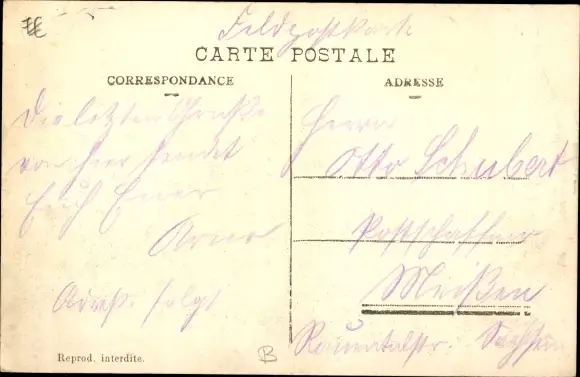 Feldpostkarte
CARTE POSTALE
CORRESPONDANCE
ADRESSE
Die letzten Grüße
von hier sendet
Euch Euer
Adress. folgt
Herrn
Otto Schubert
Postschaffner
Meißen
Rauentalstr. Sachsen
Reprod. interdite.
B